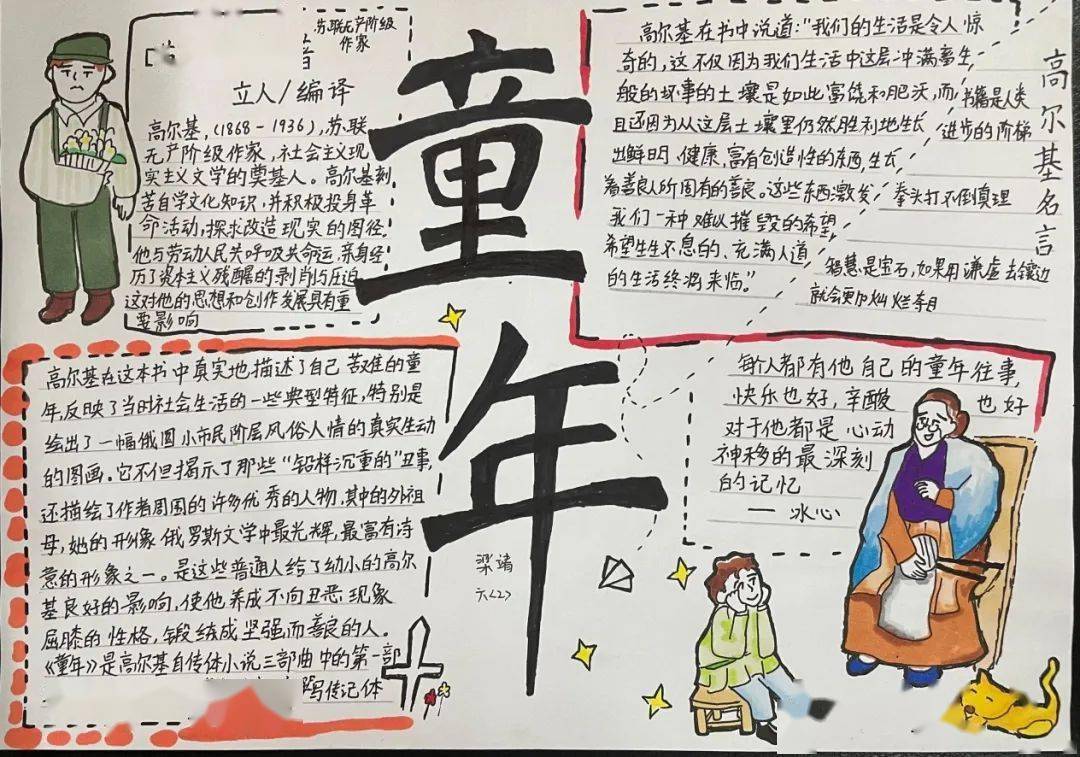 苏.联无产阶级
作家
立人/编译
高尔基,(1868-1936),苏.联
无产阶级作家,社会主义现
实主义文学的奠基人。高尔基刻
苦自学文化知识,并积极投身革
命活动,探求改造现实的图径
他与劳动人民共呼吸共命运,亲身经
历了资本主义残酷的剥削与压迫
这对他的思想和创作发展具有重
要影响
童年
高尔基在书中说道:“我们的生活是令人惊
奇的,这不仅因为我们生活中这层冲满畜生
般的坏事的土壤是如此富饶和肥沃,而
且还因为从这层土壤里仍然胜利地生长
出鲜明、健康,富有创造性的东西,生长
着善良人所固有的善良。这些东西激发
我们一种难以摧毁的希望,
希望生生不息的、充满人道
的生活终将来临。”
高尔基名言
书籍是人类
进步的阶梯
拳头打不倒真理
智慧是宝石,如果用谦虚去镶边
就会更加灿烂夺目
高尔基在这本书中真实地描述了自己苦难的童
年,反映了当时社会生活的一些典型特征,特别是
绘出了一幅俄国小市民阶层风俗人情的真实生动
的图画。它不但揭示了那些“铅样沉重的”丑事,
还描绘了作者周围的许多优秀的人物,其中的外祖
母,她的形象俄罗斯文学中最光辉,最富有诗
意的形象之一。是这些普通人给了幼小的高尔
基良好的影响,使他养成不向丑恶现象
屈膝的性格,锻练成坚强而善良的人。
《童年》是高尔基自传体小说三部曲中的第一部
写传记体
每个人都有他自己的童年往事,
快乐也好,辛酸也好
对于他都是心动
神移的最深刻
的记忆
—冰心
梁靖
六<2>